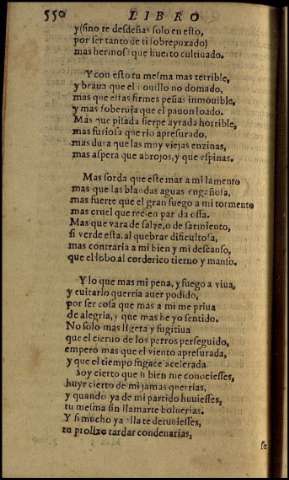 550 LIBRO
y(sino te desdeñas solo en esto,
por ser tanto de ti sobrepuxado)
mas hermosa que huerto cultiuado.
Y con esto tu mesma mas terrible,
y braua que el nouillo no domado,
mas que estas firmes peñas inmouible,
y mas soberuia que el pauon loado.
Mas que pisada sierpe ayrada horrible,
mas furiosa que rio apresurado,
mas dura que las muy viejas enzinas,
mas aspera que abrojos, y que espinas.
Mas sorda que este mar a mi lamento
mas que las blandas aguas engañosa,
mas fuerte que el gran fuego a mi tormento
mas cruel que rezien parida ossa.
Mas que vara de salze, o de sarmiento,
si verde esta, al quebrar dificultosa,
mas contraria a mi bien y mi descanso,
que el lobo al corderico tierno y manso.
Y lo que mas mi pena, y fuego a viua,
y euitarlo querria auer podido,
por ser cosa que mas a mi me priua
de alegria, y que mas he yo sentido.
No solo mas ligera y fugitiua
que el cieruo de los perros perseguido,
empero mas que el viento apresurada,
y que el tiempo fugace acelerada
Soy cierto que si bien me conociesses,
huyr cierto de mi jamas querrias,
y quando ya de mi partido huuiesses,
tu mesma sin llamarte boluerias.
Y si mucho ya alla te detuuiesses,
tu prolixo tardar condenarias,
se